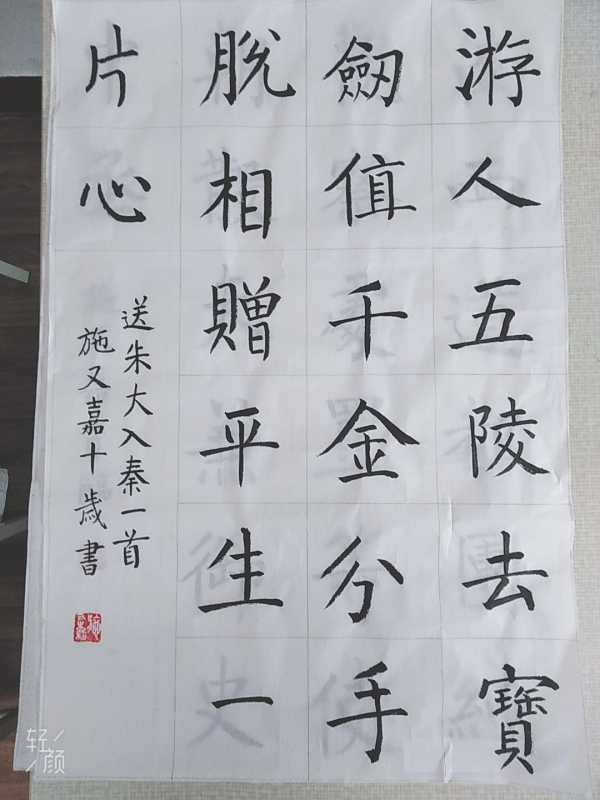 游人五陵去寶
劒值千金分手
脫相贈平生一
片心
送朱大入秦一首
施又嘉十歲書
轻颜